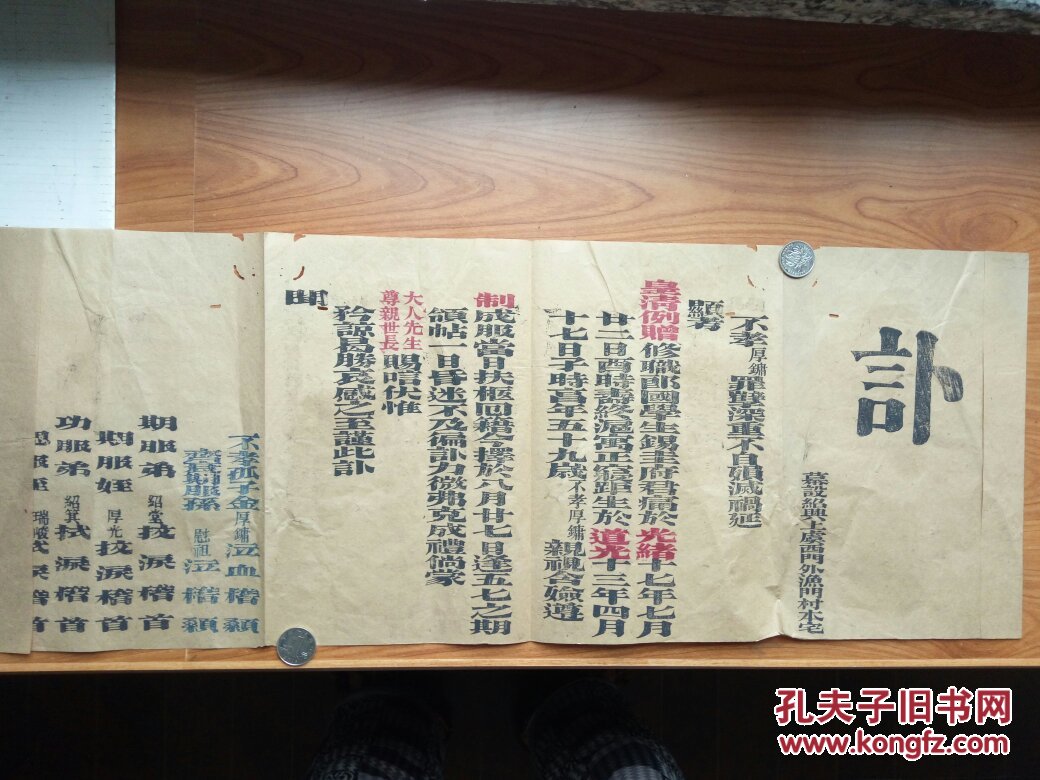 訃
幕設紹興上虞西門外漁門村本宅
不孝厚鏞罪孽深重不自殞滅禍延
顯考
皇清例贈修職郎國學生錫圭府君痛於光緒十七年七月
廿二日酉時壽終滬寓正寢距生於道光十三年四月
十七日子時享年五十九歲不孝厚鏞親視含殮遵
制成服當日扶柩回籍今擇於八月廿七日逢五七之期
領帖一日昏迷不及徧訃力微弗克成禮倘蒙
大人先生
尊親世長
賜唁伏惟
矜諒曷勝哀感之至謹此訃
聞
不孝孤子金厚鏞泣血稽顙
齊衰期服孫慰祖泣稽顙
期服弟紹堂抆淚稽首
期服姪厚光抆淚稽首
功服弟紹武拭淚稽首
服姪瑞淚稽首
孔夫子旧书网
www.kongfz.com